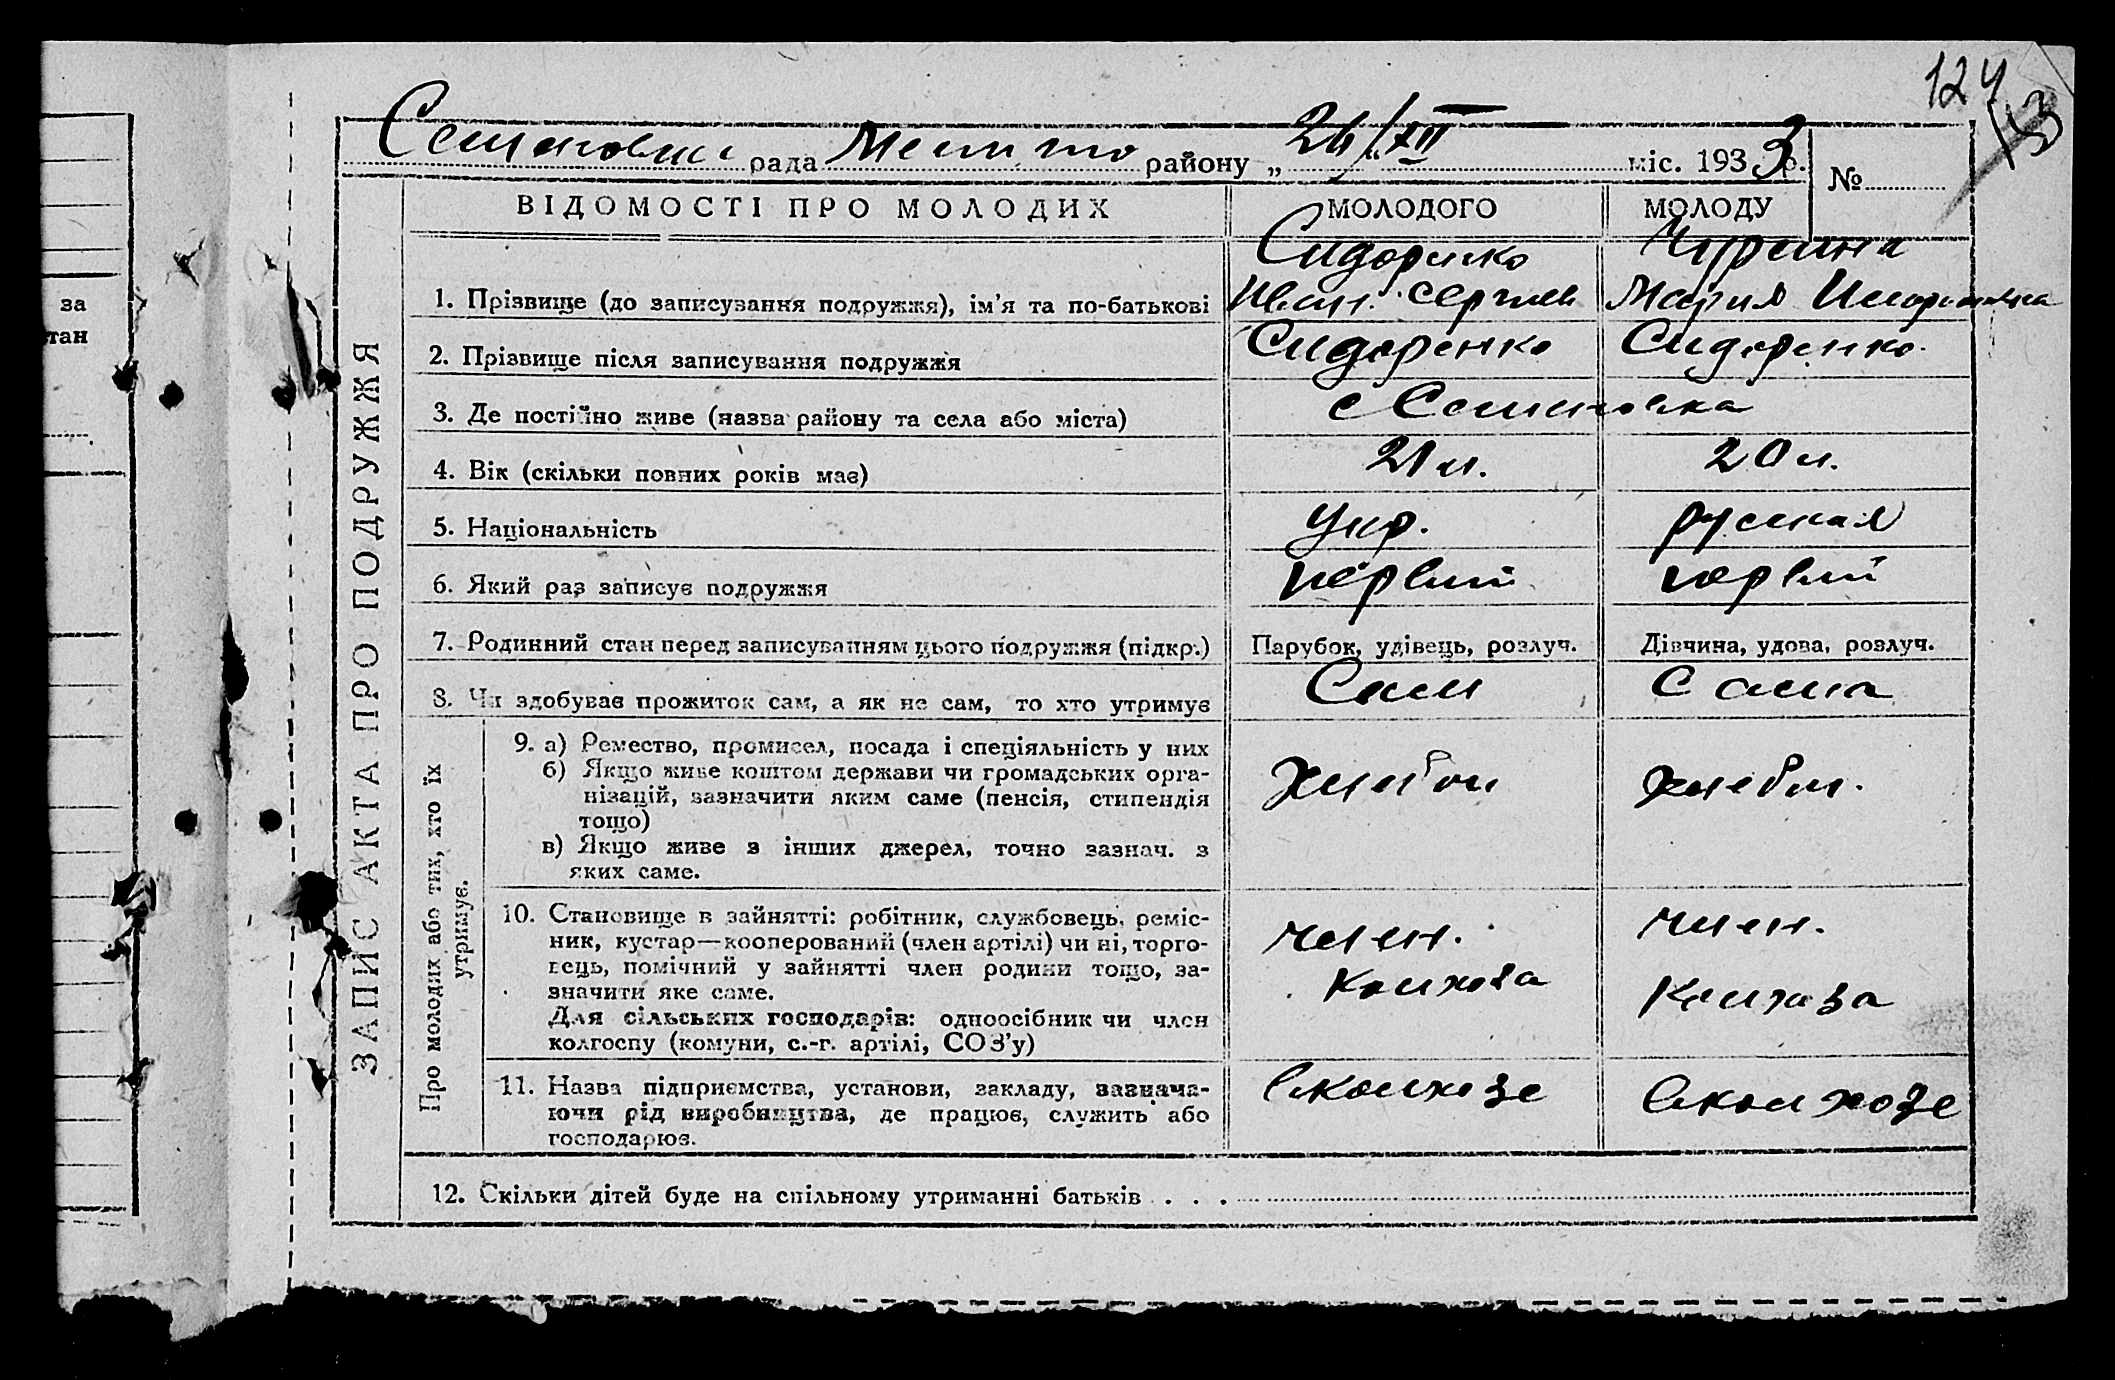 124
13
рада району „26/XII міс. 1933 р. №
за
тан
ЗАПИС АКТА ПРО ПОДРУЖЖЯ
ВІДОМОСТІ ПРО МОЛОДИХ МОЛОДОГО МОЛОДУ
Сидоренко
1. Прізвище (до записування подружжя), ім'я та по-батькові Иван Мария
2. Прізвище після записування подружжя Сидоренко Сидоренко
3. Де постійно живе (назва району та села або міста) с Семеновка
4. Вік (скільки повних років має) 21 л. 20 л.
5. Національність Укр. русская
6. Який раз записує подружжя первий первий
7. Родинний стан перед записуванням цього подружжя (підкр.) Парубок, удівець, розлуч. Дівчина, удова, розлуч.
8. Чи здобуває прожиток сам, а як не сам, то хто утримує Сам Сама
Про молодих або тих, хто їх
утримує.
9. а) Ремество, промисел, посада і спеціяльність у них
б) Якщо живе коштом держави чи громадських орга-
нізацій, зазначити яким саме (пенсія, стипендія
тощо)
в) Якщо живе з інших джерел, точно зазнач. з
яких саме.
10. Становище в зайнятті: робітник, службовець, реміс-
ник, кустар—кооперований (член артілі) чи ні, торго-
вець, помічний у зайнятті член родини тощо, за-
значити яке саме.
Для сільських господарів: одноосібник чи член
колгоспу (комуни, с.-г. артілі, СОЗ'у)
член. член.
колхоза колхоза
11. Назва підприємства, установи, закладу, зазнача-
ючи рід виробництва, де працює, служить або
господарює.
в колхозе в колхозе
12. Скільки дітей буде на спільному утриманні батьків . . .